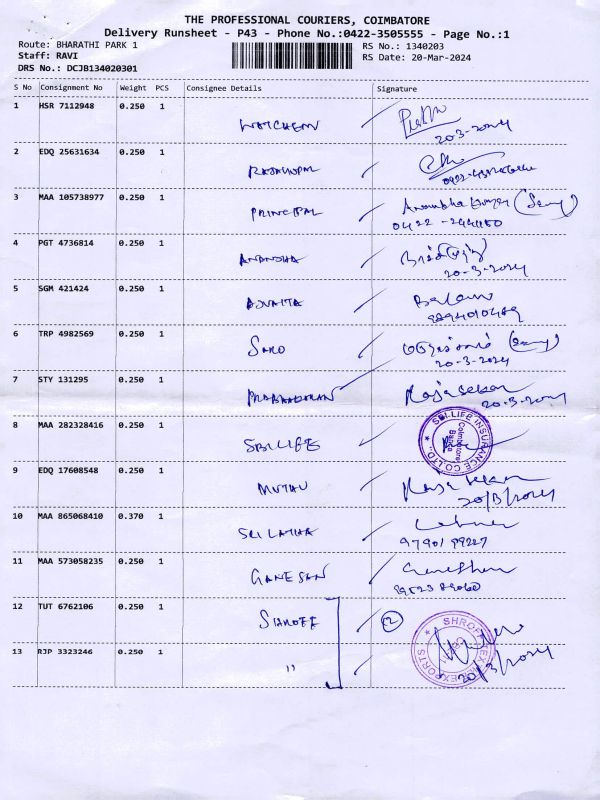 THE PROFESSIONAL COURIERS, COIMBATORE
Delivery Runsheet - P43 - Phone No.:0422-3505555 - Page No.:1
Route: BHARATHI PARK 1
RS No.: 1340203
Staff: RAVI
RS Date: 20-Mar-2024
DRS No.: DCJB134020301
S No Consignment No Weight PCS Consignee Details Signature
1 HSR 7112948 0.250 1 WATCHEM
20-3-2024
2 EDQ 25631634 0.250 1 RAJAGOPAL
3 MAA 105738977 0.250 1 PRINCIPAL
0422 - 2441180
4 PGT 4736814 0.250 1
20-3-2024
5 SGM 421424 0.250 1 ADVAITA Balam
9894010489
6 TRP 4982569 0.250 1 SARO
20-3-2024
7 STY 131295 0.250 1 PRABAHARAN Rajasekar
20-3-2024
8 MAA 282328416 0.250 1 SBILIFE SBI LIFE INSURANCE CO LTD. Coimbatore
9 EDQ 17608548 0.250 1 MUTHU Rajasekar
20/3/2024
10 MAA 865068410 0.370 1 SRILATHA
97901 99227
11 MAA 573058235 0.250 1 GANESAN Ganeshan
12 TUT 6762106 0.250 1 SHROFF 2
EXPORTS
13 RJP 3323246 0.250 1 "
20/3/2024